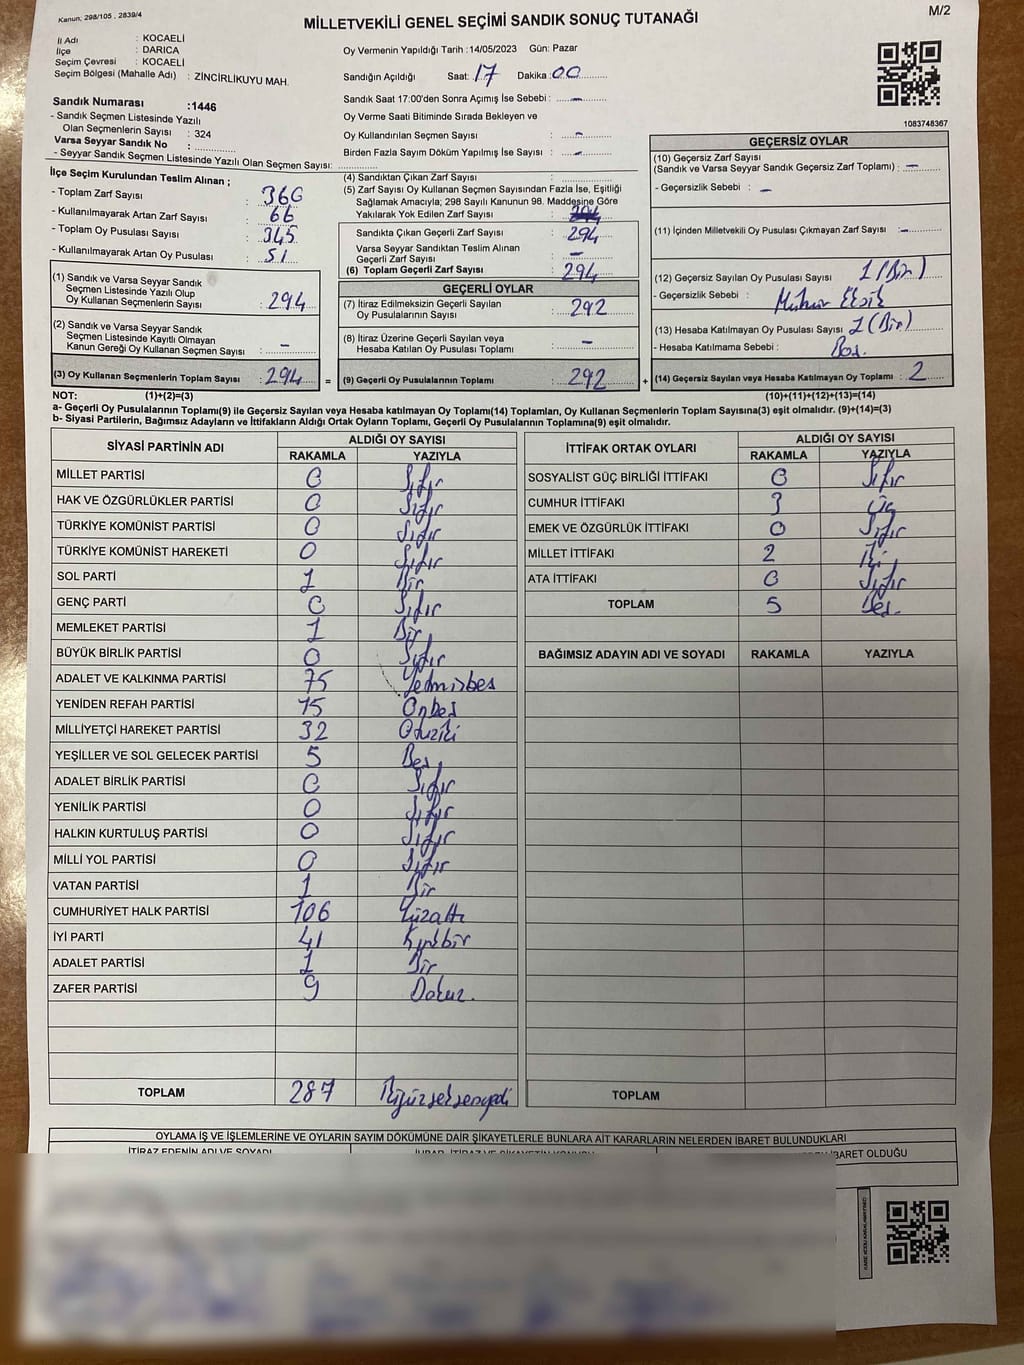 Kanun, 298/105 , 2839/4
MİLLETVEKİLİ GENEL SEÇİMİ SANDIK SONUÇ TUTANAĞI
M/2
İl Adı : KOCAELİ
İlçe : DARICA
Seçim Çevresi : KOCAELİ
Seçim Bölgesi (Mahalle Adı) : ZİNCİRLİKUYU MAH.
Sandık Numarası :1446
- Sandık Seçmen Listesinde Yazılı
Olan Seçmenlerin Sayısı : 324
Varsa Seyyar Sandık No :
- Seyyar Sandık Seçmen Listesinde Yazılı Olan Seçmen Sayısı:
İlçe Seçim Kurulundan Teslim Alınan ;
- Toplam Zarf Sayısı : 360
- Kullanılmayarak Artan Zarf Sayısı : 66
- Toplam Oy Pusulası Sayısı : 345
- Kullanılmayarak Artan Oy Pusulası : 51
(1) Sandık ve Varsa Seyyar Sandık
Seçmen Listesinde Yazılı Olup
Oy Kullanan Seçmenlerin Sayısı : 294
(2) Sandık ve Varsa Seyyar Sandık
Seçmen Listesinde Kayıtlı Olmayan
Kanun Gereği Oy Kullanan Seçmen Sayısı : -
(3) Oy Kullanan Seçmenlerin Toplam Sayısı : 294 =
Oy Vermenin Yapıldığı Tarih : 14/05/2023 Gün: Pazar
Sandığın Açıldığı Saat: 17 Dakika : 00
Sandık Saat 17:00'den Sonra Açımış İse Sebebi : -
Oy Verme Saati Bitiminde Sırada Bekleyen ve
Oy Kullandırılan Seçmen Sayısı : -
Birden Fazla Sayım Döküm Yapılmış İse Sayısı : -
(4) Sandıktan Çıkan Zarf Sayısı :
(5) Zarf Sayısı Oy Kullanan Seçmen Sayısından Fazla İse, Eşitliği
Sağlamak Amacıyla; 298 Sayılı Kanunun 98. Maddesine Göre
Yakılarak Yok Edilen Zarf Sayısı :
Sandıkta Çıkan Geçerli Zarf Sayısı : 294
Varsa Seyyar Sandıktan Teslim Alınan
Geçerli Zarf Sayısı : -
(6) Toplam Geçerli Zarf Sayısı : 294
GEÇERLİ OYLAR
(7) İtiraz Edilmeksizin Geçerli Sayılan
Oy Pusulalarının Sayısı : 292
(8) İtiraz Üzerine Geçerli Sayılan veya
Hesaba Katılan Oy Pusulası Toplamı : -
(9) Geçerli Oy Pusulalarının Toplamı : 292 +
1083748367
GEÇERSİZ OYLAR
(10) Geçersiz Zarf Sayısı
(Sandık ve Varsa Seyyar Sandık Geçersiz Zarf Toplamı) : -
- Geçersizlik Sebebi : -
(11) İçinden Milletvekili Oy Pusulası Çıkmayan Zarf Sayısı : -
(12) Geçersiz Sayılan Oy Pusulası Sayısı : 1 (Bir)
- Geçersizlik Sebebi : Mühür Eksik
(13) Hesaba Katılmayan Oy Pusulası Sayısı : 1 (Bir)
- Hesaba Katılmama Sebebi : Boş.
(14) Geçersiz Sayılan veya Hesaba Katılmayan Oy Toplamı : 2
NOT: (1)+(2)=(3) (10)+(11)+(12)+(13)=(14)
a- Geçerli Oy Pusulalarının Toplamı(9) ile Geçersiz Sayılan veya Hesaba katılmayan Oy Toplamı(14) Toplamları, Oy Kullanan Seçmenlerin Toplam Sayısına(3) eşit olmalıdır. (9)+(14)=(3)
b- Siyasi Partilerin, Bağımsız Adayların ve İttifakların Aldığı Ortak Oyların Toplamı, Geçerli Oy Pusulalarının Toplamına(9) eşit olmalıdır.
SİYASİ PARTİNİN ADI ALDIĞI OY SAYISI
RAKAMLA YAZIYLA
MİLLET PARTİSİ 0 Sıfır
HAK VE ÖZGÜRLÜKLER PARTİSİ 0 Sıfır
TÜRKİYE KOMÜNİST PARTİSİ 0 Sıfır
TÜRKİYE KOMÜNİST HAREKETİ 0 Sıfır
SOL PARTİ 1 Bir
GENÇ PARTİ 0 Sıfır
MEMLEKET PARTİSİ 1 Bir
BÜYÜK BİRLİK PARTİSİ 0 Sıfır
ADALET VE KALKINMA PARTİSİ 75 Yetmişbeş
YENİDEN REFAH PARTİSİ 15 Onbeş
MİLLİYETÇİ HAREKET PARTİSİ 32 Otuziki
YEŞİLLER VE SOL GELECEK PARTİSİ 5 Beş
ADALET BİRLİK PARTİSİ 0 Sıfır
YENİLİK PARTİSİ 0 Sıfır
HALKIN KURTULUŞ PARTİSİ 0 Sıfır
MİLLİ YOL PARTİSİ 0 Sıfır
VATAN PARTİSİ 1 Bir
CUMHURİYET HALK PARTİSİ 106 Yüzaltı
İYİ PARTİ 41 Kırkbir
ADALET PARTİSİ 1 Bir
ZAFER PARTİSİ 9 Dokuz.
TOPLAM 287 İkiyüzseksenyedi
İTTİFAK ORTAK OYLARI ALDIĞI OY SAYISI
RAKAMLA YAZIYLA
SOSYALİST GÜÇ BİRLİĞİ İTTİFAKI 0 Sıfır
CUMHUR İTTİFAKI 3 Üç
EMEK VE ÖZGÜRLÜK İTTİFAKI 0 Sıfır
MİLLET İTTİFAKI 2 İki
ATA İTTİFAKI 0 Sıfır
TOPLAM 5 Beş.
BAĞIMSIZ ADAYIN ADI VE SOYADI RAKAMLA YAZIYLA
TOPLAM
OYLAMA İŞ VE İŞLEMLERİNE VE OYLARIN SAYIM DÖKÜMÜNE DAİR ŞİKAYETLERLE BUNLARA AİT KARARLARIN NELERDEN İBARET BULUNDUKLARI
İTİRAZ EDENİN ADI VE SOYADI
İBARET OLDUĞU